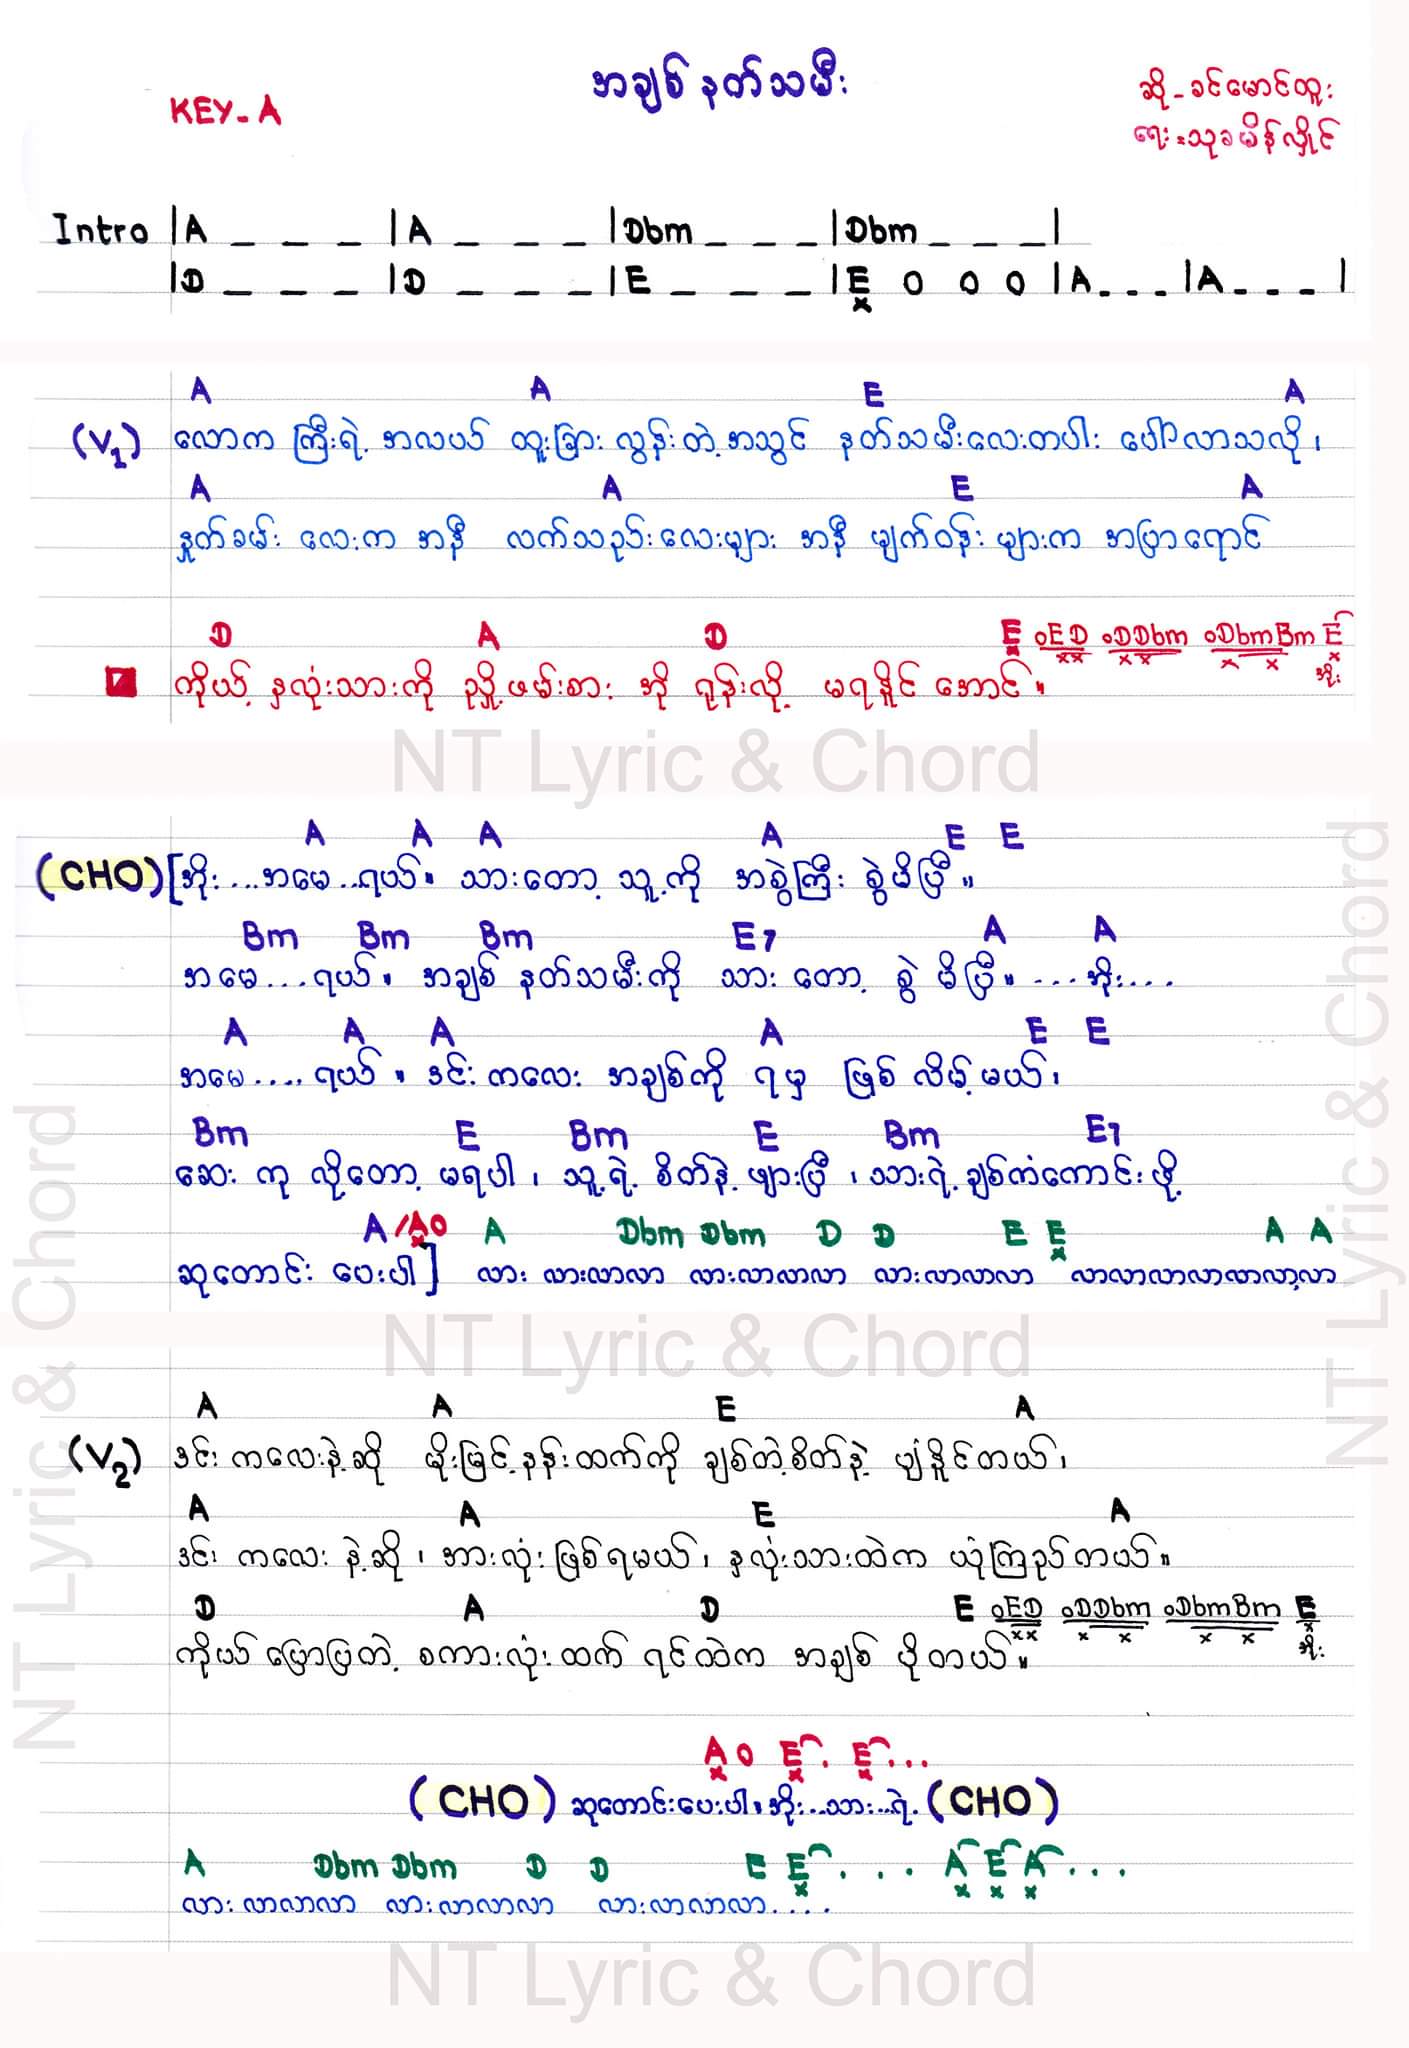 အချစ်နတ်သမီး
KEY-A
ဆို-ခင်မောင်ထူး
ရေး=သုခမိန်လှိုင်
Intro |A _ _ _ |A _ _ _ |Dbm _ _ _ |Dbm _ _ _ |
|D _ _ _ |D _ _ _ |E _ _ _ |E O O O |A _ _ _ |A _ _ _ |
x
A A E A
(V1) လောက ကြီးရဲ့ အလယ် ထူးခြား လွန်းတဲ့ အသွင် နတ်သမီးလေးတပါး ပေါ်လာသလို၊
A A E A
နှုတ်ခမ်း လေးက အနီ လက်သည်းလေးများ အနီ မျက်ဝန်း များက အပြာရောင်
D A D E oED oDDbm oDbmBm E
x xx xx x x x
ကိုယ့် နှလုံးသားကို ညှို့ဖမ်းစား အို ရုန်းလို့ မရနိုင် အောင်။ အိုး
NT Lyric & Chord
A A A A E E
(CHO) [အိုး...အမေ..ရယ်။ သားတော့ သူ့ကို အစွဲကြီး စွဲမိပြီ။
Bm Bm Bm E7 A A
အမေ...ရယ်။ အချစ် နတ်သမီးကို သား တော့ စွဲ မိပြီ။....အိုး....
A A A A E E
အမေ....ရယ်။ ဒင်း ကလေး အချစ်ကို ရမှ ဖြစ် လိမ့်မယ်၊
Bm E Bm E Bm E7
ဆေး ကု လို့တော့ မရပါ၊ သူ့ရဲ့ စိတ်နဲ့ ဖျားပြီ၊သားရဲ့ ချစ်ကံကောင်းဖို့
A /AO A Dbm Dbm D D E E A A
x x
ဆုတောင်း ပေးပါ] လား လားလာလာ လားလာလာလာ လားလာလာလာ လာလာလာလာလာလာ့လာ
NT Lyric & Chord
A A E A
(V2) ဒင်း ကလေးနဲ့ဆို မိုးမြင့်နန်းထက်ကို ချစ်တဲ့စိတ်နဲ့ ပျံနိုင်တယ်၊
A A E A
ဒင်း ကလေး နဲ့ဆို၊ အားလုံး ဖြစ်ရမယ်၊ နှလုံးသားထဲက ယုံကြည်တယ်။
D A D E oED oDDbm oDbmBm E
xx x x x x x
ကိုယ် ပြောပြတဲ့ စကားလုံးထက် ရင်ထဲက အချစ် ပိုတယ်။ အိုး
AO E. E...
x x x
(CHO) ဆုတောင်းပေးပါ။အိုး..သား..ရဲ့ (CHO)
A Dbm Dbm D D E E... A E A...
x x x x
လား လာလာလာ လားလာလာလာ လားလာလာလာ....
NT Lyric & Chord
NT Lyric & Chord
NT Lyric & Chord
NT Lyric & Chord
NT Lyric & Chord